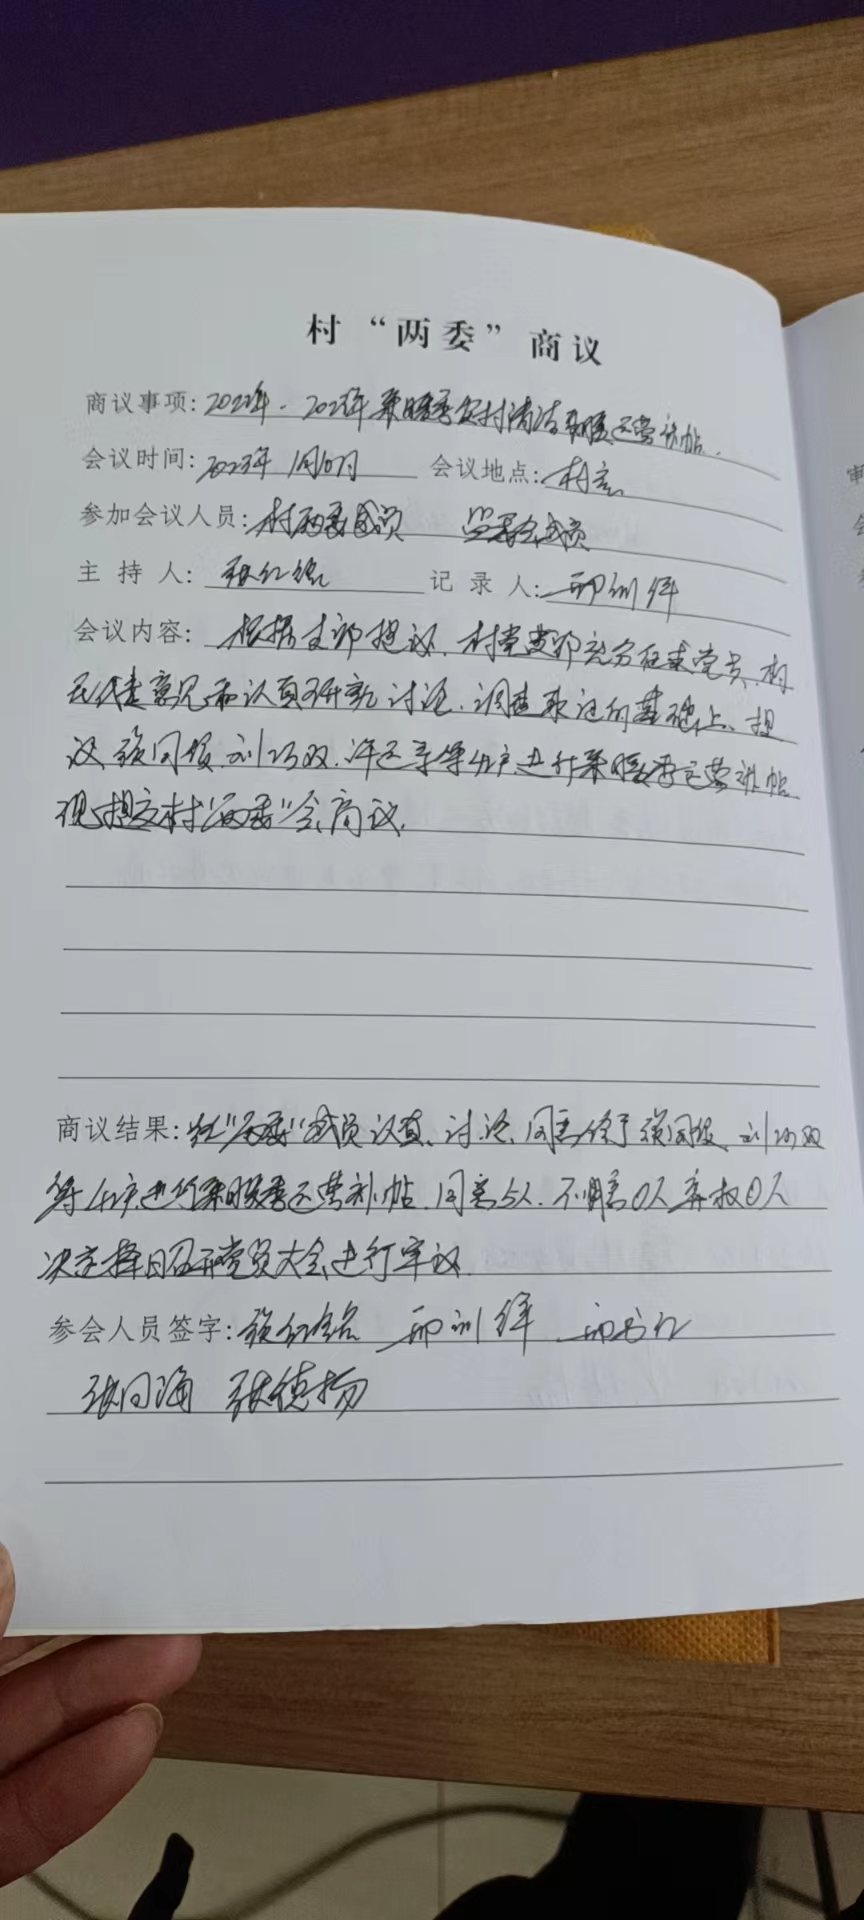 村“两委”商议
商议事项: 2022年-2023年采暖季农村清洁取暖运营补贴.
会议时间: 2023年1月10日 会议地点: 村室
参加会议人员: 村两委成员 监委会成员
主持人: 张红 记录人: 邢训
会议内容: 根据支部提议, 村党支部充分征求党员、村
民代表意见和认真研究讨论, 调查取证的基础上, 提
议 刘巧双, 等4户进行采暖季运营补贴
现提交村“两委”会商议.
商议结果: 经“两委”成员认真讨论, 同意给予 刘巧双
等4户进行采暖季运营补帖. 同意5人. 不同意0人 弃权0人
决定择日召开党员大会进行审议.
参会人员签字: 邢训
张同海 张德扬
审